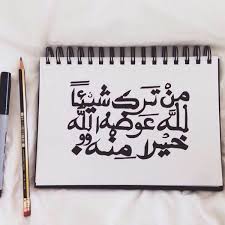 مِنْ تَرَكَ شَيْئاً
لِلّٰه عَوضَه الله
خَيْراً مِنه